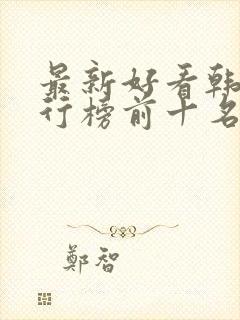 最新好看韩
行榜前十名
鄭智